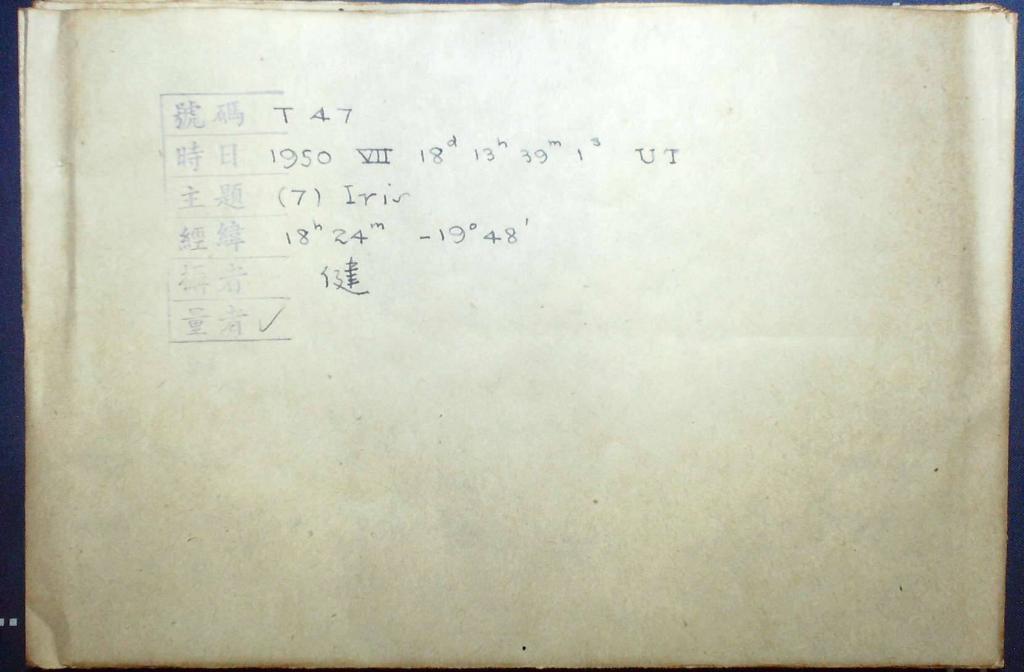 號碼 T 47
時日 1950 VII 18ᵈ 13ʰ 39ᵐ 1ˢ UT
主題 (7) Iris
經緯 18ʰ 24ᵐ -19° 48'
攝者 健
量者 ✓